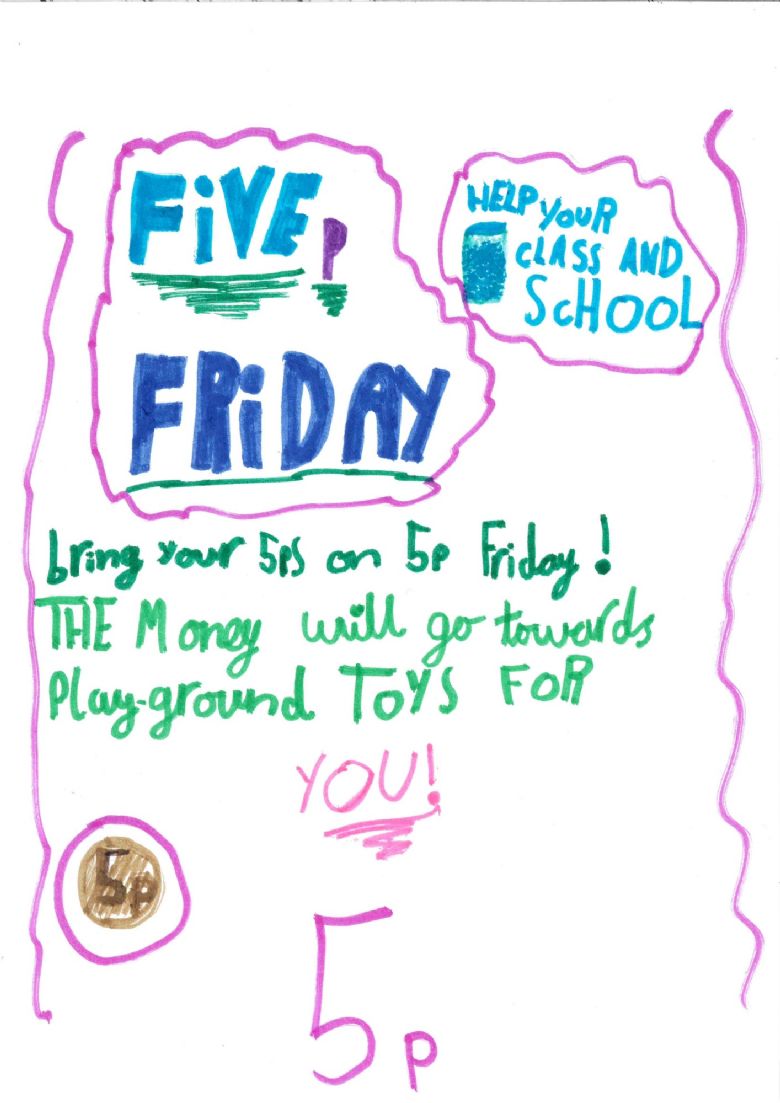 FiVE P
FRiDAY
HELP YOUR
CLASS AND
ScHOOL
bring your 5ps on 5p Friday!
THE Money will go towards
Play-ground TOYS FOR
YOU!
5p
5p